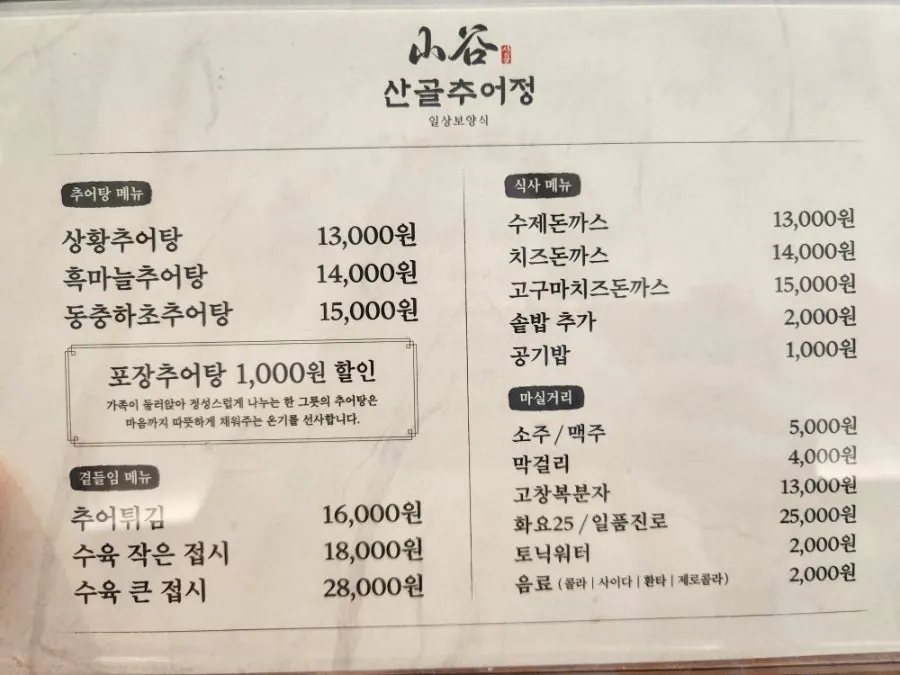 山谷
산골추어정
일상보양식
추어탕 메뉴
상황추어탕 13,000원
흑마늘추어탕 14,000원
동충하초추어탕 15,000원
포장추어탕 1,000원 할인
가족이 둘러앉아 정성스럽게 나누는 한 그릇의 추어탕은
마음까지 따뜻하게 채워주는 온기를 선사합니다.
곁들임 메뉴
추어튀김 16,000원
수육 작은 접시 18,000원
수육 큰 접시 28,000원
식사 메뉴
수제돈까스 13,000원
치즈돈까스 14,000원
고구마치즈돈까스 15,000원
솥밥 추가 2,000원
공기밥 1,000원
마실거리
소주 / 맥주 5,000원
막걸리 4,000원
고창복분자 13,000원
화요25 / 일품진로 25,000원
토닉워터 2,000원
음료 (콜라 | 사이다 | 환타 | 제로콜라) 2,000원